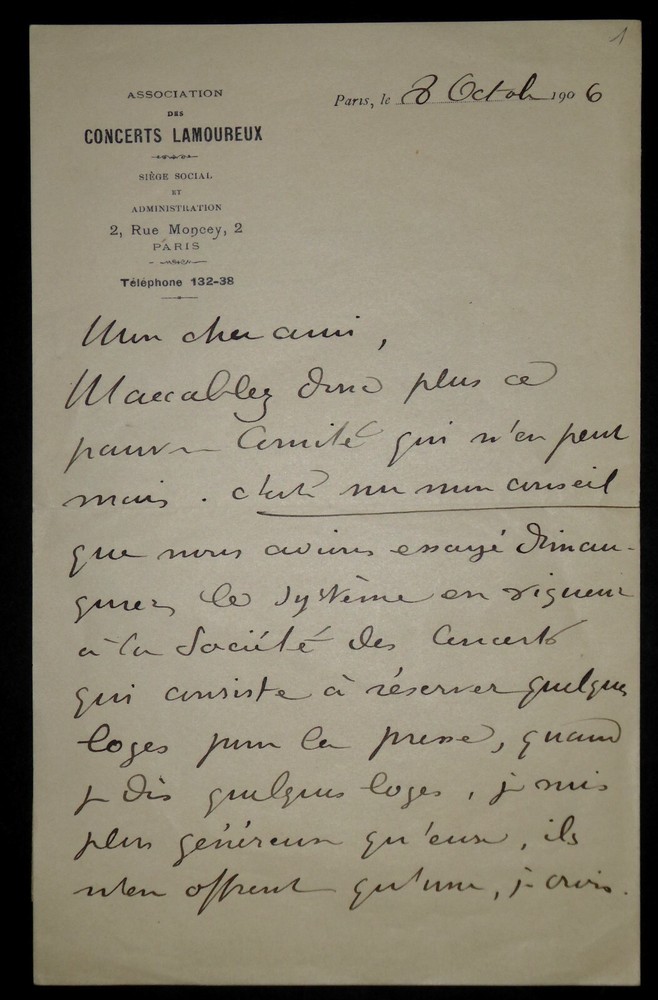 1
ASSOCIATION
DES
CONCERTS LAMOUREUX
SIÈGE SOCIAL
ET
ADMINISTRATION
2, Rue Moncey, 2
PARIS
Téléphone 132-38
Paris, le 8 Octob 1906
Mon cher ami,
N'accablez donc plus ce
pauvre Comité qui n'en peut
mais. c'est sur mon conseil
que nous avions essayé d'inau-
gurer le système en vigueur
à la Société des Concerts
qui consiste à réserver quelques
loges pour la presse, quand
je dis quelques loges, je suis
plus généreux qu'eux, ils
n'en offrent qu'une, je crois.